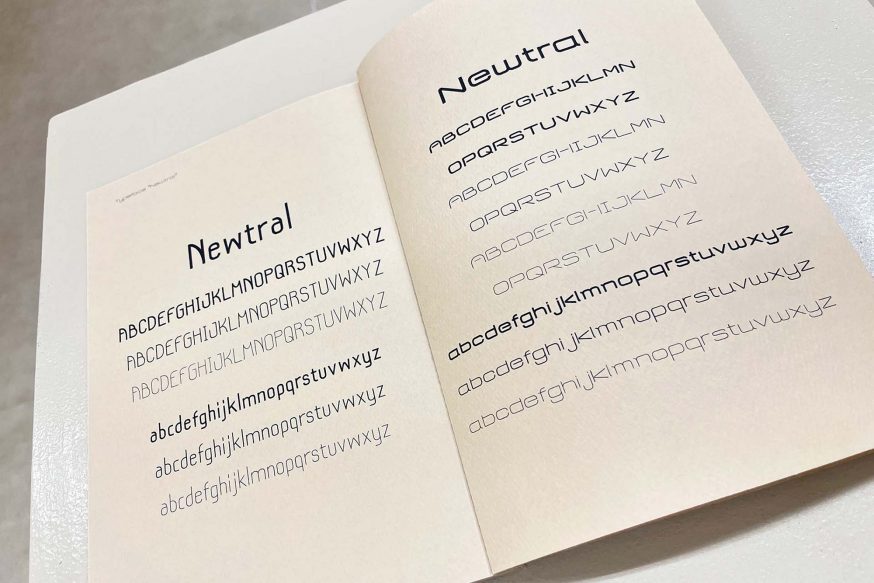 Typeface "Newtral"
Newtral
ABCDEFGHIJKLMNOPQRSTUVWXYZ
ABCDEFGHIJKLMNOPQRSTUVWXYZ
ABCDEFGHIJKLMNOPQRSTUVWXYZ
abcdefghijklmnopqrstuvwxyz
abcdefghijklmnopqrstuvwxyz
abcdefghijklmnopqrstuvwxyz
Newtral
ABCDEFGHIJKLMN
OPQRSTUVWXYZ
ABCDEFGHIJKLMN
OPQRSTUVWXYZ
ABCDEFGHIJKLMN
OPQRSTUVWXYZ
abcdefghijklmnopqrstuvwxyz
abcdefghijklmnopqrstuvwxyz
abcdefghijklmnopqrstuvwxyz